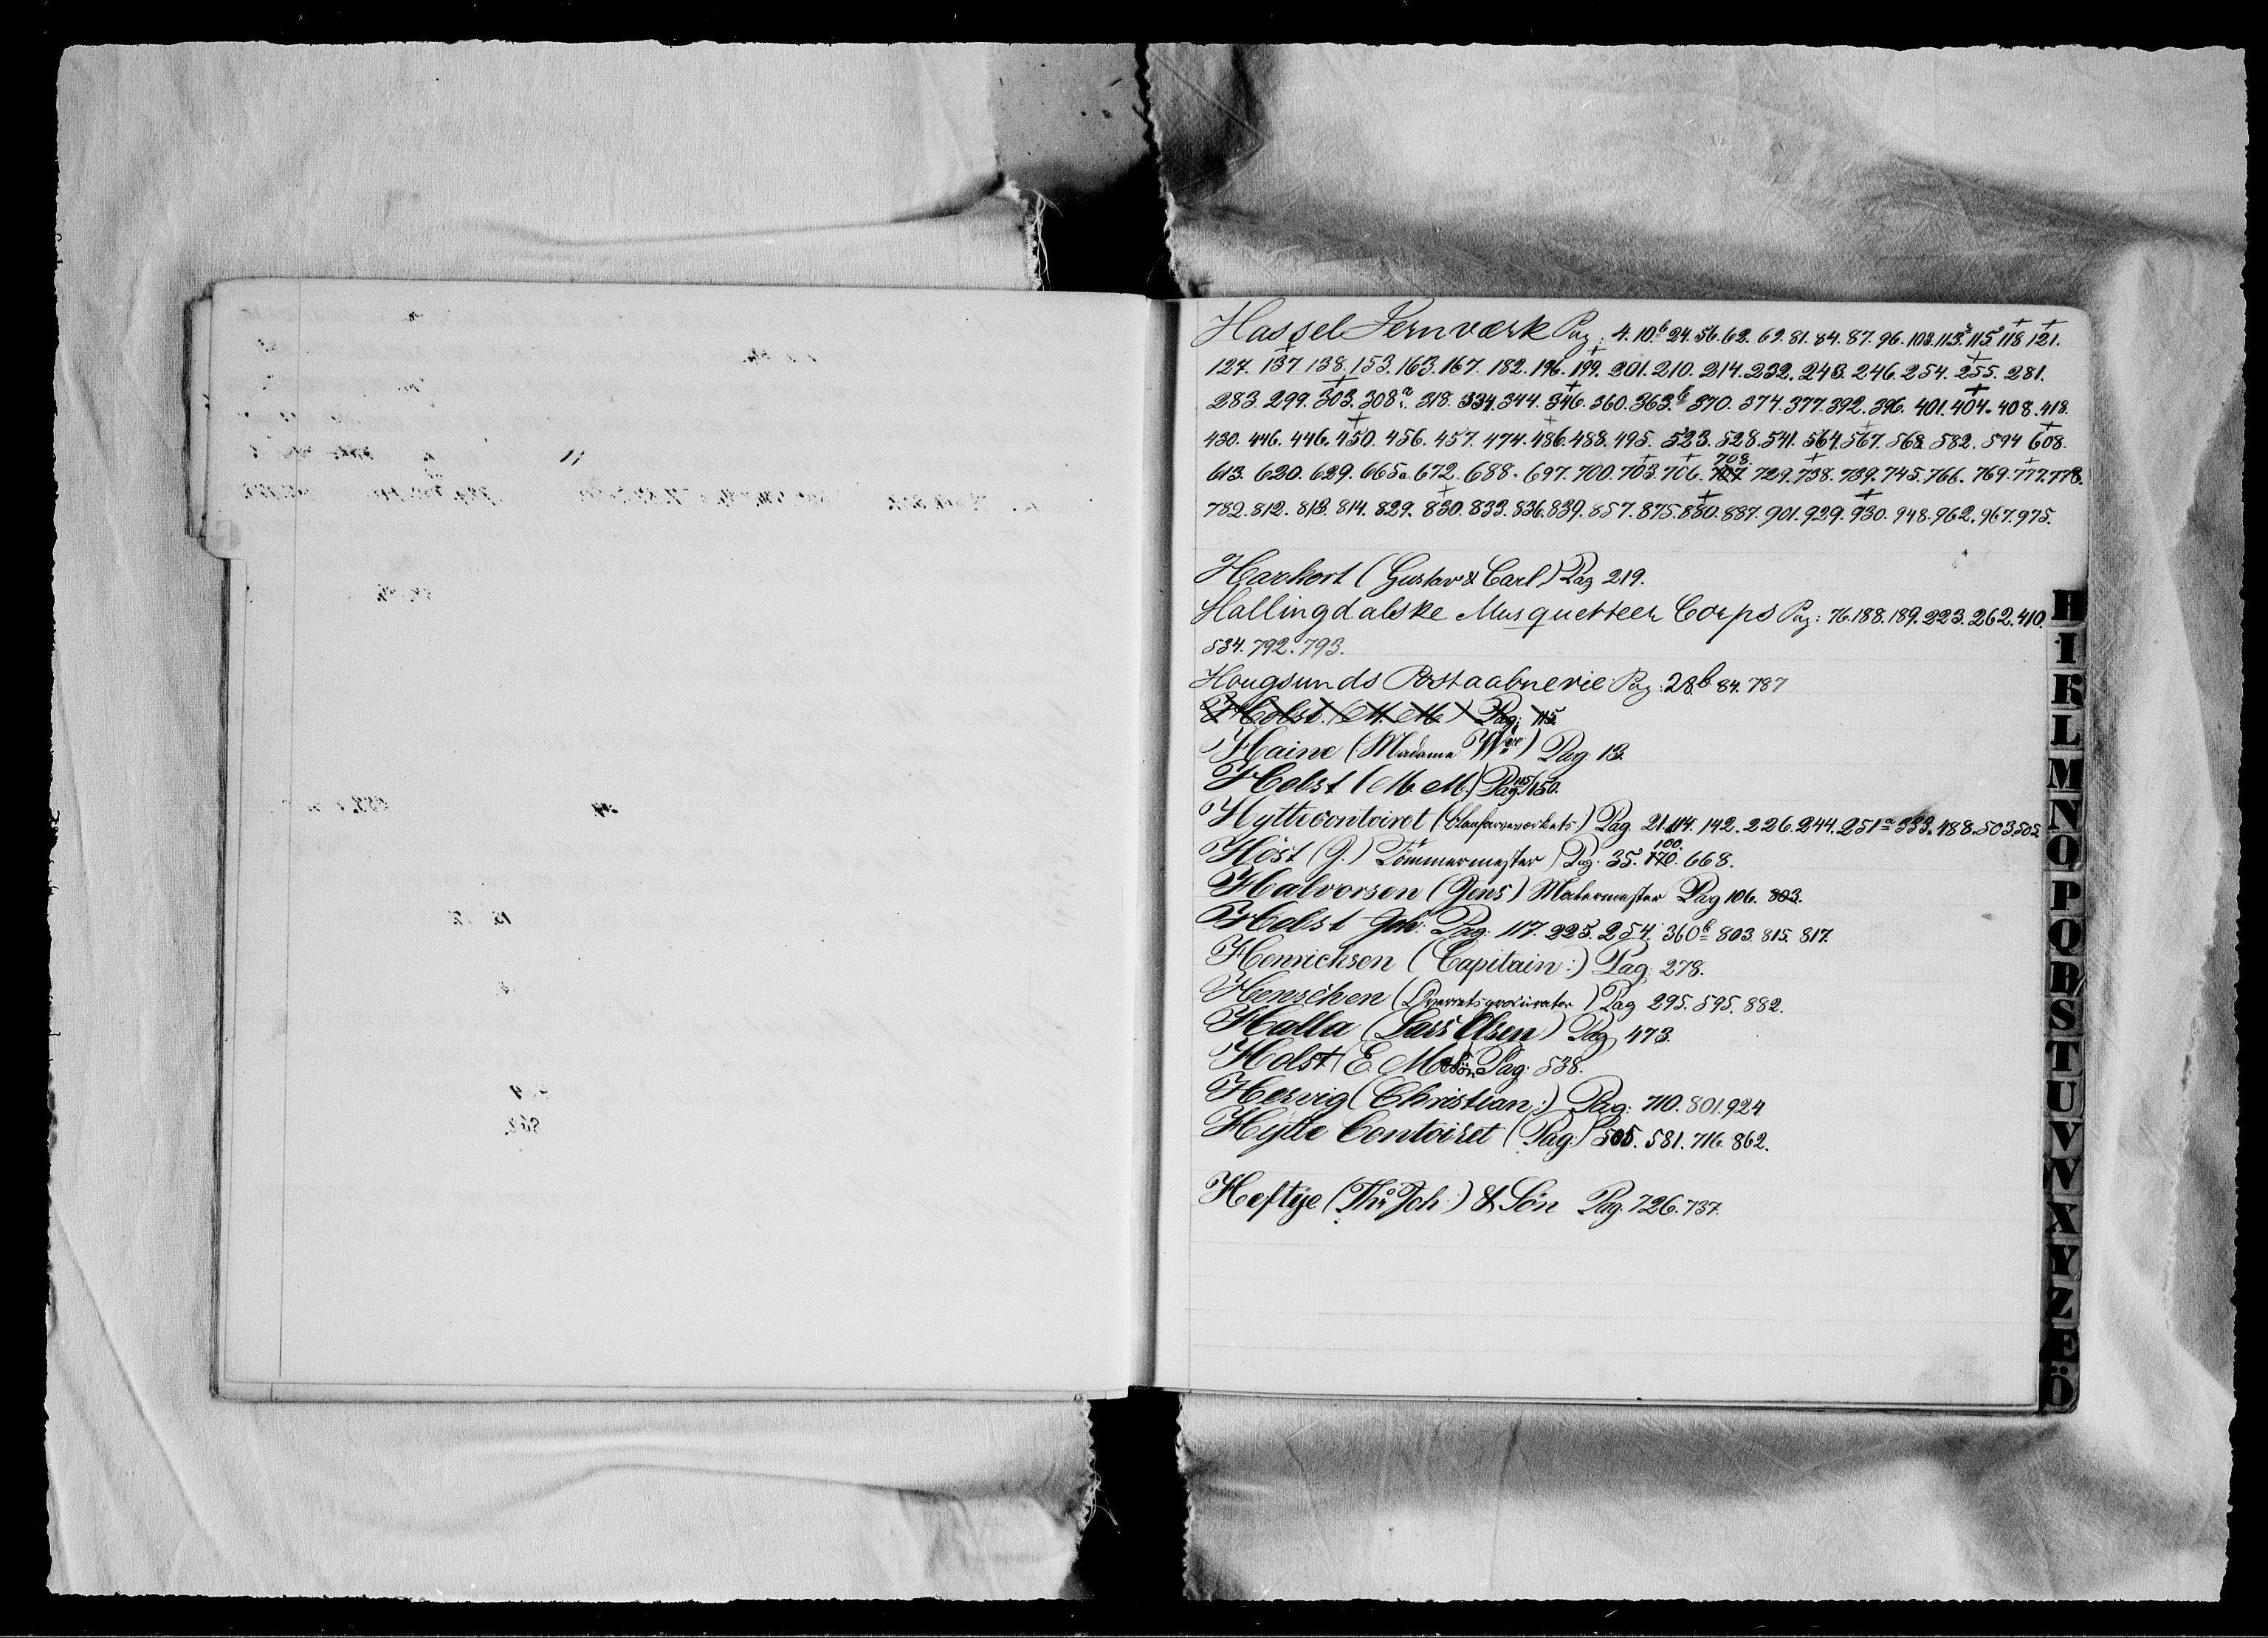 Hassel Jernværk Pag: 4. 10.b 24. 56. 62. 69. 81. 84. 87. 96. 108. 113.a 115. 118. 121.
127. 137. 138. 153. 163. 167. 182. 196. 199. 201. 210. 214. 232. 243. 246. 254. 255. 281.
283. 299. 303. 308a. 318. 334. 344. 346. 360. 363.b 370. 374. 377. 392. 396. 401. 404. 408. 418.
430. 446. 446. 450. 456. 457. 474. 486. 488. 495. 523. 528. 541. 564. 567. 568. 582. 594. 608.
708.
613. 620. 629. 665a 672. 688. 697. 700. 703. 706. 707 729. 738. 739. 745. 766. 769. 777. 778.
782. 812. 813. 814. 829. 830. 833. 836. 839. 857. 875. 880. 887. 901. 929. 930. 948. 962. 967. 975.
Harkort (Gustav & Carl) Pag 219.
Hallingdalske Musquetteer Corps Pag: 76. 188. 189. 223. 262. 410.
534. 792. 793.
Hougsunds Postaabnerie Pag: 28.b 84. 787
Holst (M. M.) Pag: 115.
Haine (Madame Wwe) Pag 13.
Holst (M. M.) Pag 115/150.
Hyttecontoiret (Blaafarveværkets) Pag. 21. 114. 142. 226. 244. 251a 333. 488. 503. 505.
100.
Höst (G.) Tömmermester) Pag. 35. 170. 668.
Halvorsen (Jens) Malermester Pag 106. 803.
Holst Joh: Pag: 117. 225. 254. 360b 803. 815. 817.
Henrichsen (Capitain:) Pag: 278.
Henschen (Overretsprocurator) Pag 295. 595. 882.
Halla (Lars Olsen) Pag 473.
Holst E. M & Sön Pag: 538.
Hervig (Christian:) Pag: 710. 801. 924
Hytte Contoiret (Pag:) 505. 581. 716. 862.
Heftye (Ths Joh:) & Sön Pag. 726. 737.
H
I
K
L
M
N
O
P
Q
R
S
T
U
V
W
X
Y
Z
Æ
Ö